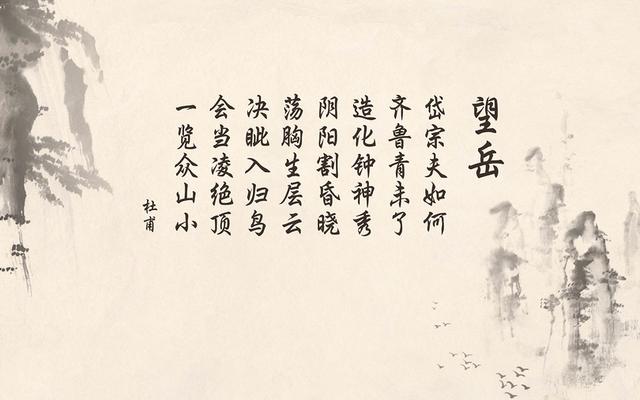 望岳
岱宗夫如何
齐鲁青未了
造化钟神秀
阴阳割昏晓
荡胸生层云
决眦入归鸟
会当凌绝顶
一览众山小
杜甫